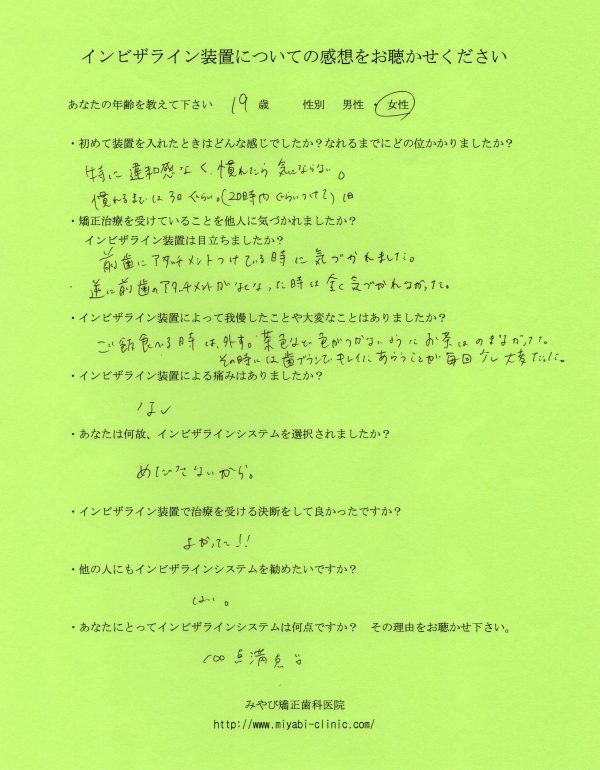 インビザライン装置についての感想をお聴かせください
あなたの年齢を教えて下さい 19 歳 性別 男性 ・ 女性
・初めて装置を入れたときはどんな感じでしたか？なれるまでにどの位かかりましたか？
特に違和感なく、慣れたら気にならない。
慣れるまでは3日ぐらい。(20時間ぐらいつけて)
・矯正治療を受けていることを他人に気づかれましたか？
インビザライン装置は目立ちましたか？
前歯にアタッチメントつけている時に気づかれました。
逆に前歯のアタッチメントがなくなった時は全く気づかれなかった。
・インビザライン装置によって我慢したことや大変なことはありましたか？
ご飯食べる時は、外す。茶色など色がつかないようにお茶はのまなかった。
その時には歯ブラシでキレイにあらうことが毎回少し大変だった。
・インビザライン装置による痛みはありましたか？
ない
・あなたは何故、インビザラインシステムを選択されましたか？
めだたないから。
・インビザライン装置で治療を受ける決断をして良かったですか？
よかった!!
・他の人にもインビザラインシステムを勧めたいですか？
はい。
・あなたにとってインビザラインシステムは何点ですか？ その理由をお聴かせ下さい。
100点満点。
みやび矯正歯科医院
http://www.miyabi-clinic.com/